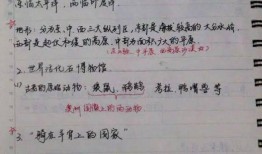 东临太平洋，西临印度洋
地形：分为东、中、西三大纵列区，东部是海拔较高的大分水岭
西部是起伏和缓的高原，中部为面积广大的平原
2. 世界活化石博物馆
古老的原始动物：袋鼠、鸸鹋、考拉、鸭嘴兽 等
澳洲国徽上的两动物
3. “骑在羊背上的国家”